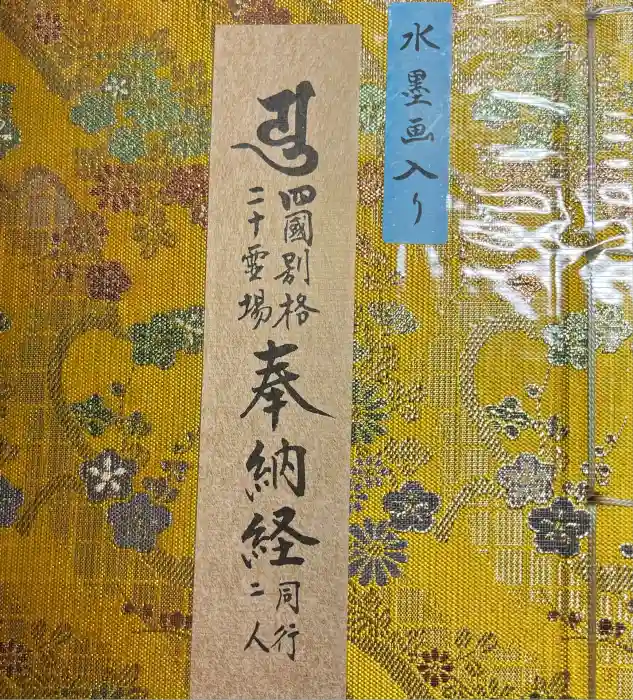 水墨画入り
四國別格
二十霊場
奉納経
同行
二人